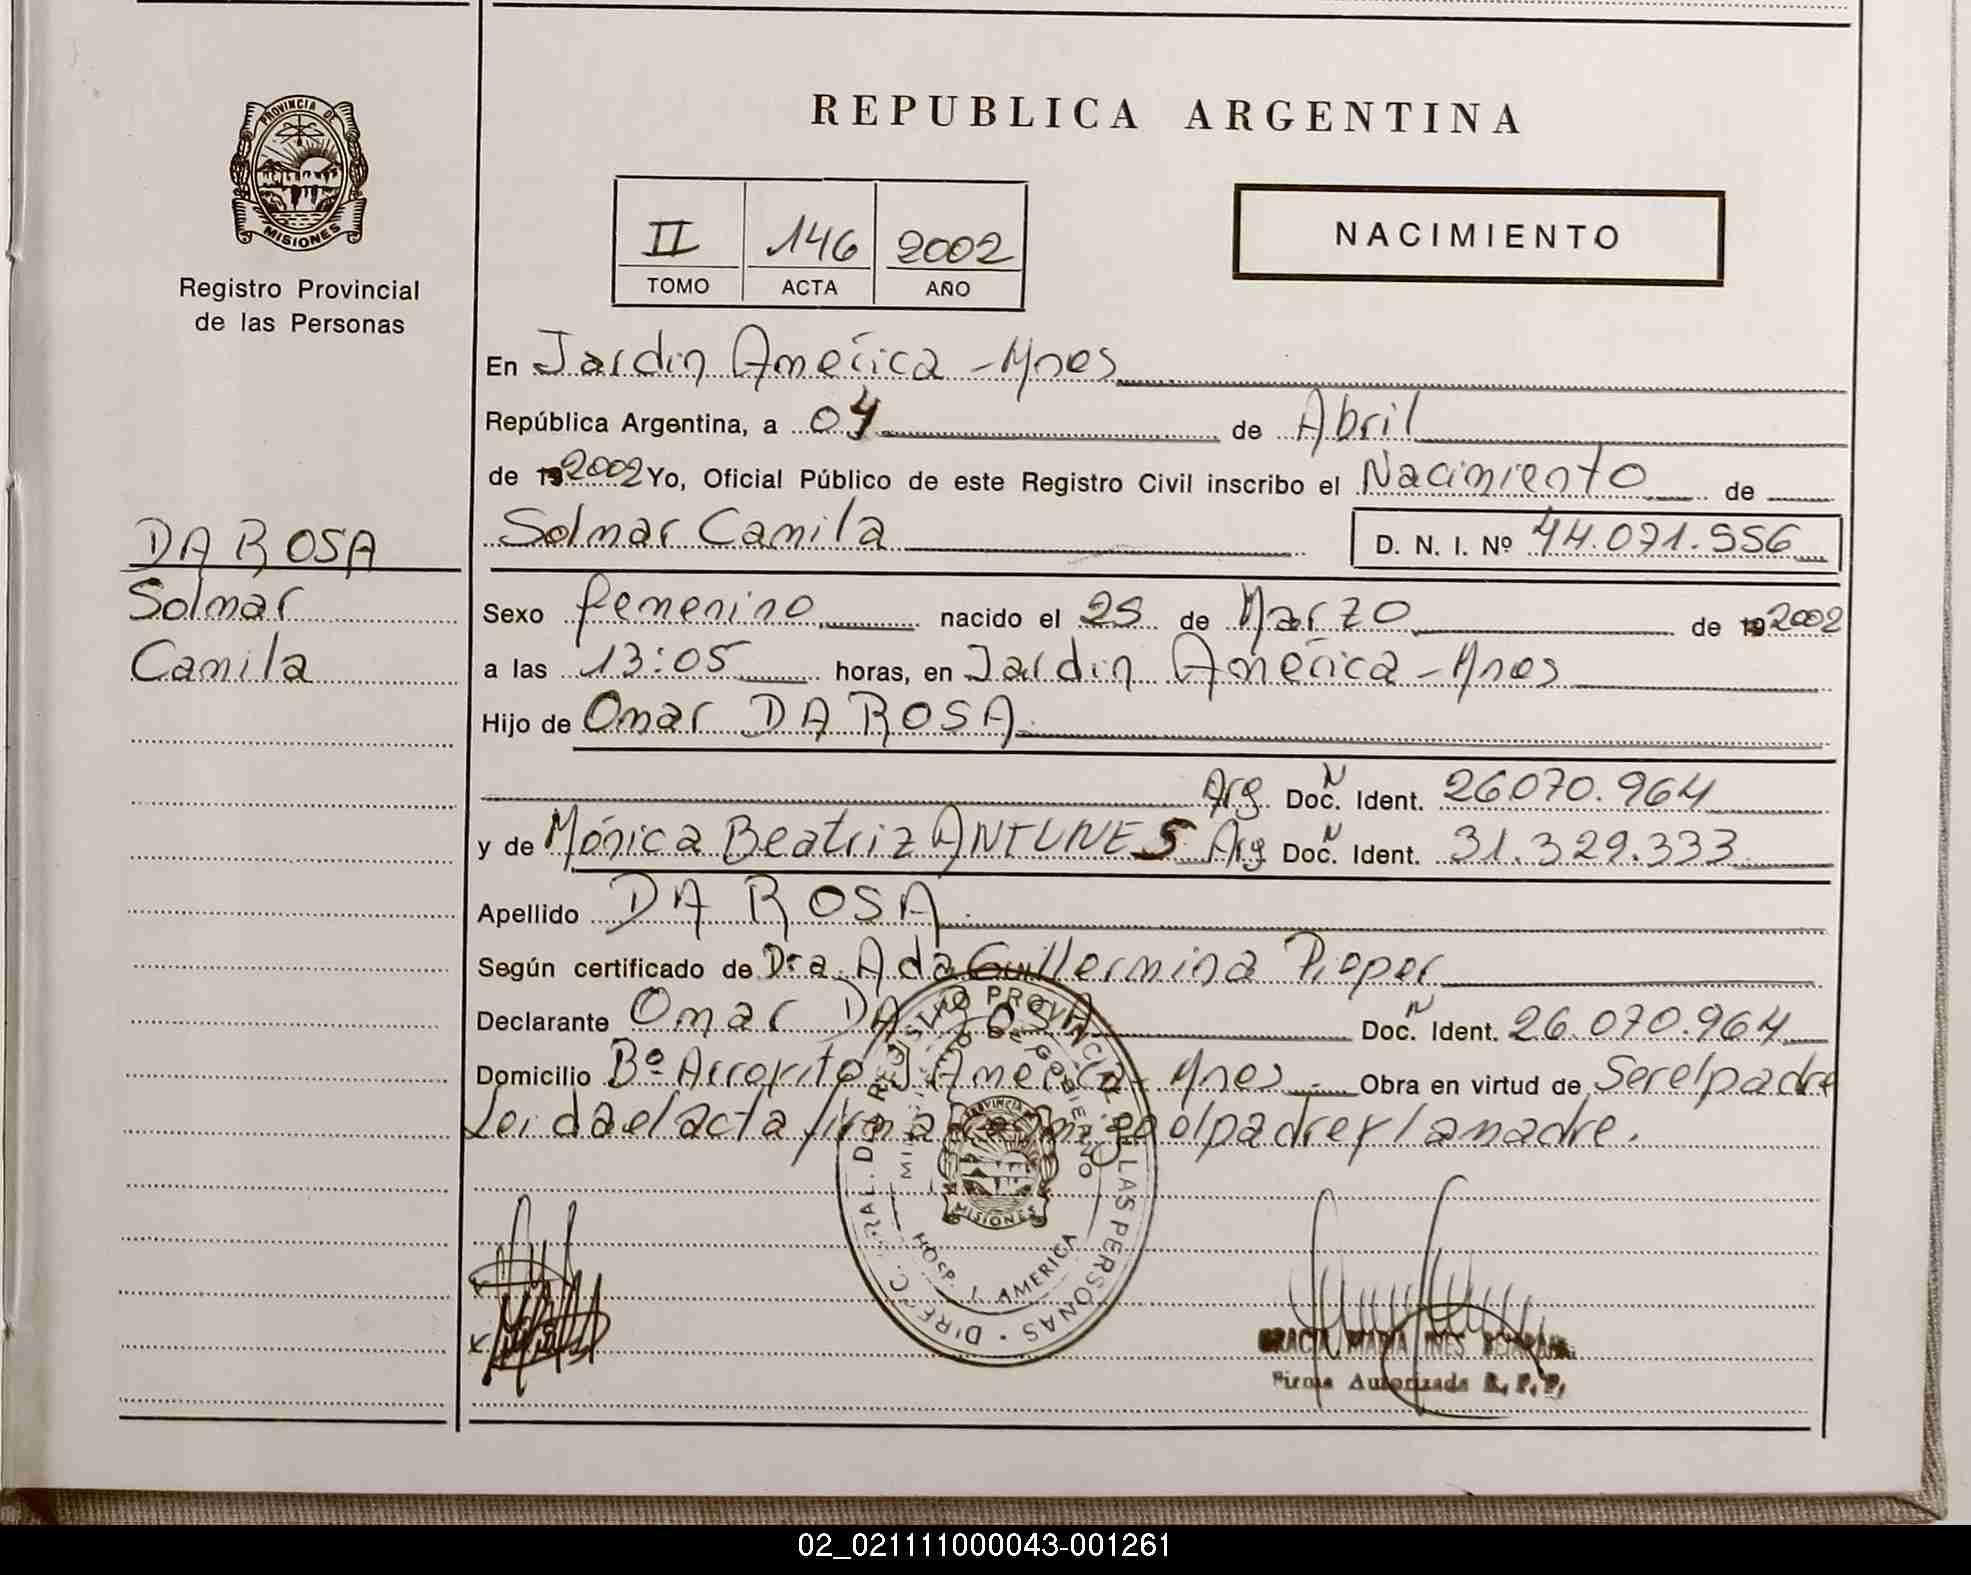 REPUBLICA ARGENTINA
PROVINCIA DE
MISIONES
Registro Provincial
de las Personas
II 146 2002
TOMO ACTA AÑO
NACIMIENTO
En Jardin América - Mnes
República Argentina, a 04 de Abril
de 19 2002 Yo, Oficial Público de este Registro Civil inscribo el Nacimiento de
Solmar Camila D. N. I. Nº 44.071.556
DA ROSA
Solmar
Camila
Sexo femenino nacido el 25 de Marzo de 19 2002
a las 13:05 horas, en Jardin América - Mnes
Hijo de Omar DA ROSA
Arg Doc. N Ident. 26070.964
y de Mónica Beatriz ANTUNES Arg Doc. N Ident. 31.329.333
Apellido DA ROSA
Según certificado de Dra. Ada Guillermina Pieper
Declarante Omar DA ROSA Doc. N Ident. 26.070.964
Domicilio Bº Arroyito J. América - Mnes Obra en virtud de Ser el padre
Leida el acta firman conmigo el padre y la madre.
DIREC. GRAL. DE REGISTRO PROVINCIAL DE LAS PERSONAS
MINISTERIO DE GOBIERNO
PROVINCIA DE
MISIONES
HOSP. J. AMERICA
GRACIA MARIA INES
Firma Autorizada R. P. P.
02_021111000043-001261